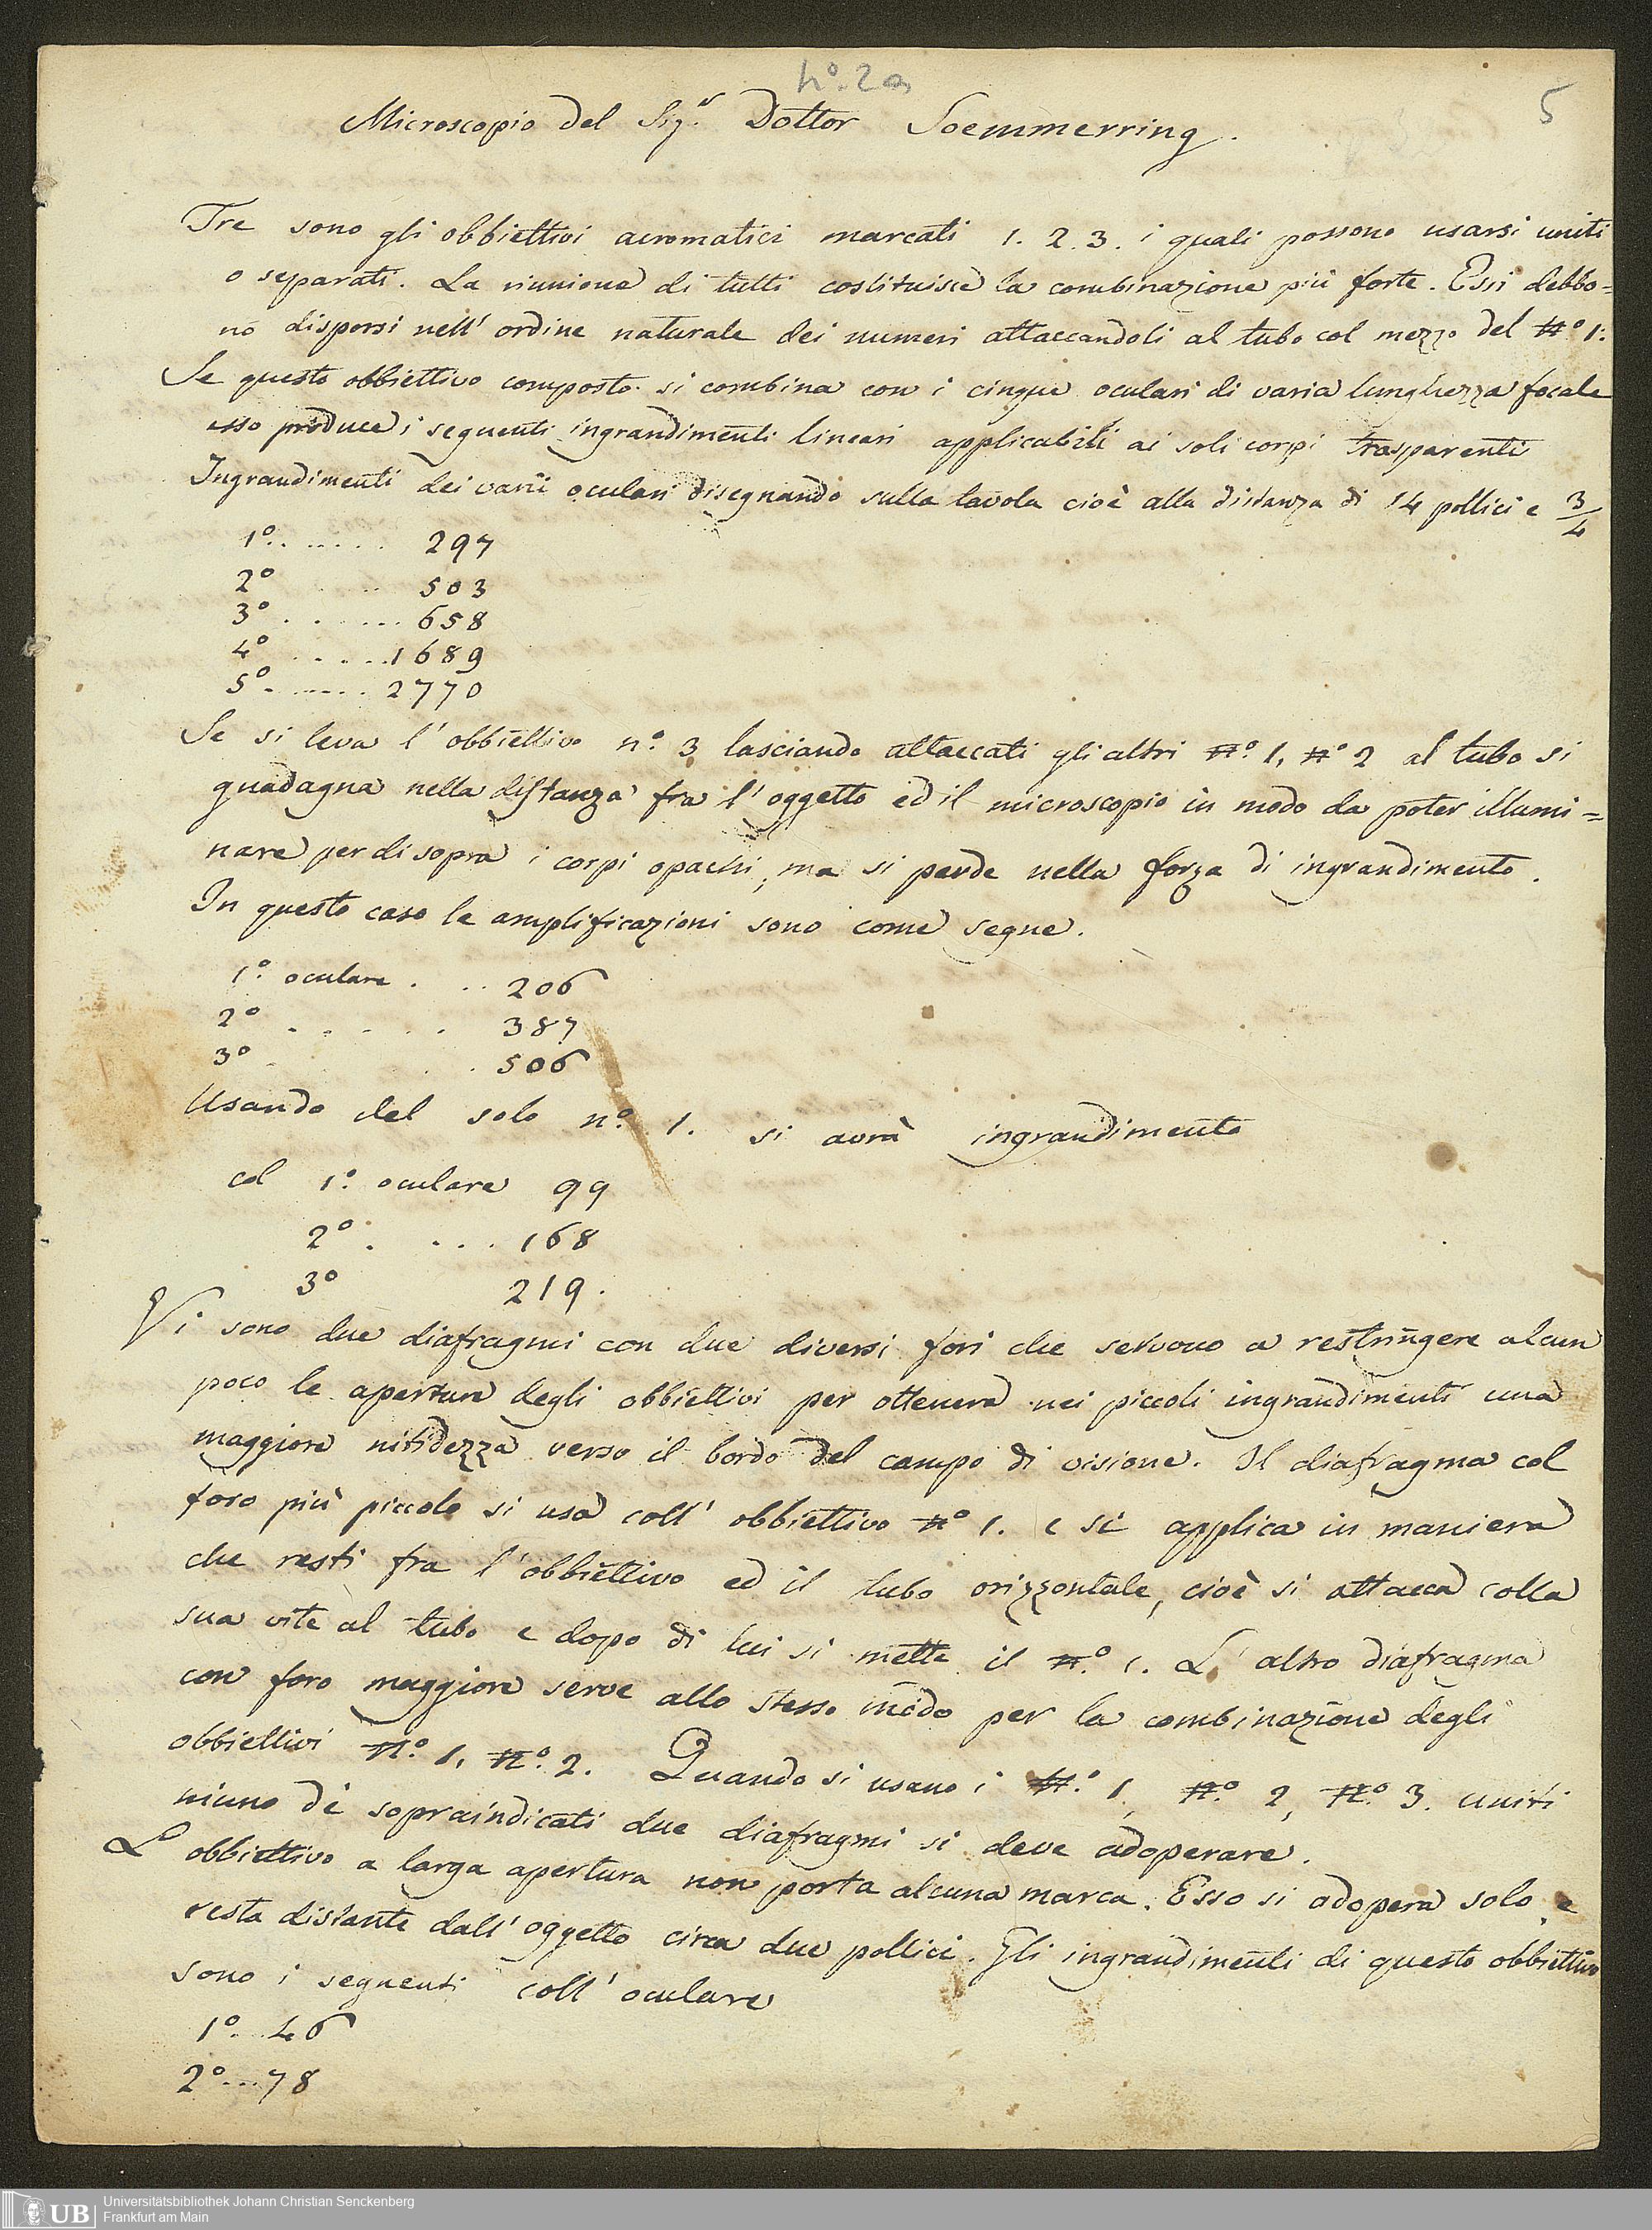 nº. 2a
5
Microscopio del Sigr. Dottor Soemmerring.
Tre sono gli obbiettivi acromatici marcati 1. 2. 3. i quali possono usarsi uniti
o separati. La riunione di tutti costituisce la combinazione più forte. Essi debbo=
no disporsi nell' ordine naturale dei numeri attaccandoli al tubo col mezzo del Nº 1.
Se questo obbiettivo composto si combina con i cinque oculari di varia lunghezza focale
esso produce i seguenti ingrandimenti lineari applicabili ai soli corpi trasparenti
Ingrandimenti dei varii oculari disegnando sulla tavola cioè alla distanza di 14 pollici e 3/4
1º. ...... 297
2º ...... 503
3º ....... 658
4º ..... 1689
5º ...... 2770
Se si leva l' obbiettivo nº. 3 lasciando attaccati gli altri nº. 1, nº 2 al tubo si
guadagna nella distanza fra l' oggetto ed il microscopio in modo da poter illumi=
nare per di sopra i corpi opachi, ma si perde nella forza di ingrandimento.
In questo caso le amplificazioni sono come segue.
1º. oculare . .. 206
2º ..... 387
3º . .. 506
Usando del solo nº. 1. si avrà ingrandimento
col 1º. oculare 99
2º. ... 168
3º 219.
Vi sono due diafragmi con due diversi fori che servono a restringere alcun
poco le aperture degli obbiettivi per ottenere nei piccoli ingrandimenti una
maggiore nitidezza verso il bordo del campo di visione. Il diafragma col
foro più piccolo si usa coll' obbiettivo nº 1. e si applica in maniera
che resti fra l' obbiettivo ed il tubo orizzontale, cioè si attacca colla
sua vite al tubo e dopo di lui si mette il nº. 1. L' altro diafragma
con foro maggiore serve allo stesso modo per la combinazione degli
obbiettivi nº. 1, nº. 2. Quando si usano i Nº. 1, nº. 2, nº. 3. uniti
niuno de sopraindicati due diafragmi si deve adoperare.
L' obbiettivo a larga apertura non porta alcuna marca. Esso si adopera solo e
resta distante dall' oggetto circa due pollici. Gli ingrandimenti di questo obbiettivo
sono i seguenti coll' oculare
1º. .. 46
2º ... 78
UB
Universitätsbibliothek Johann Christian Senckenberg
Frankfurt am Main